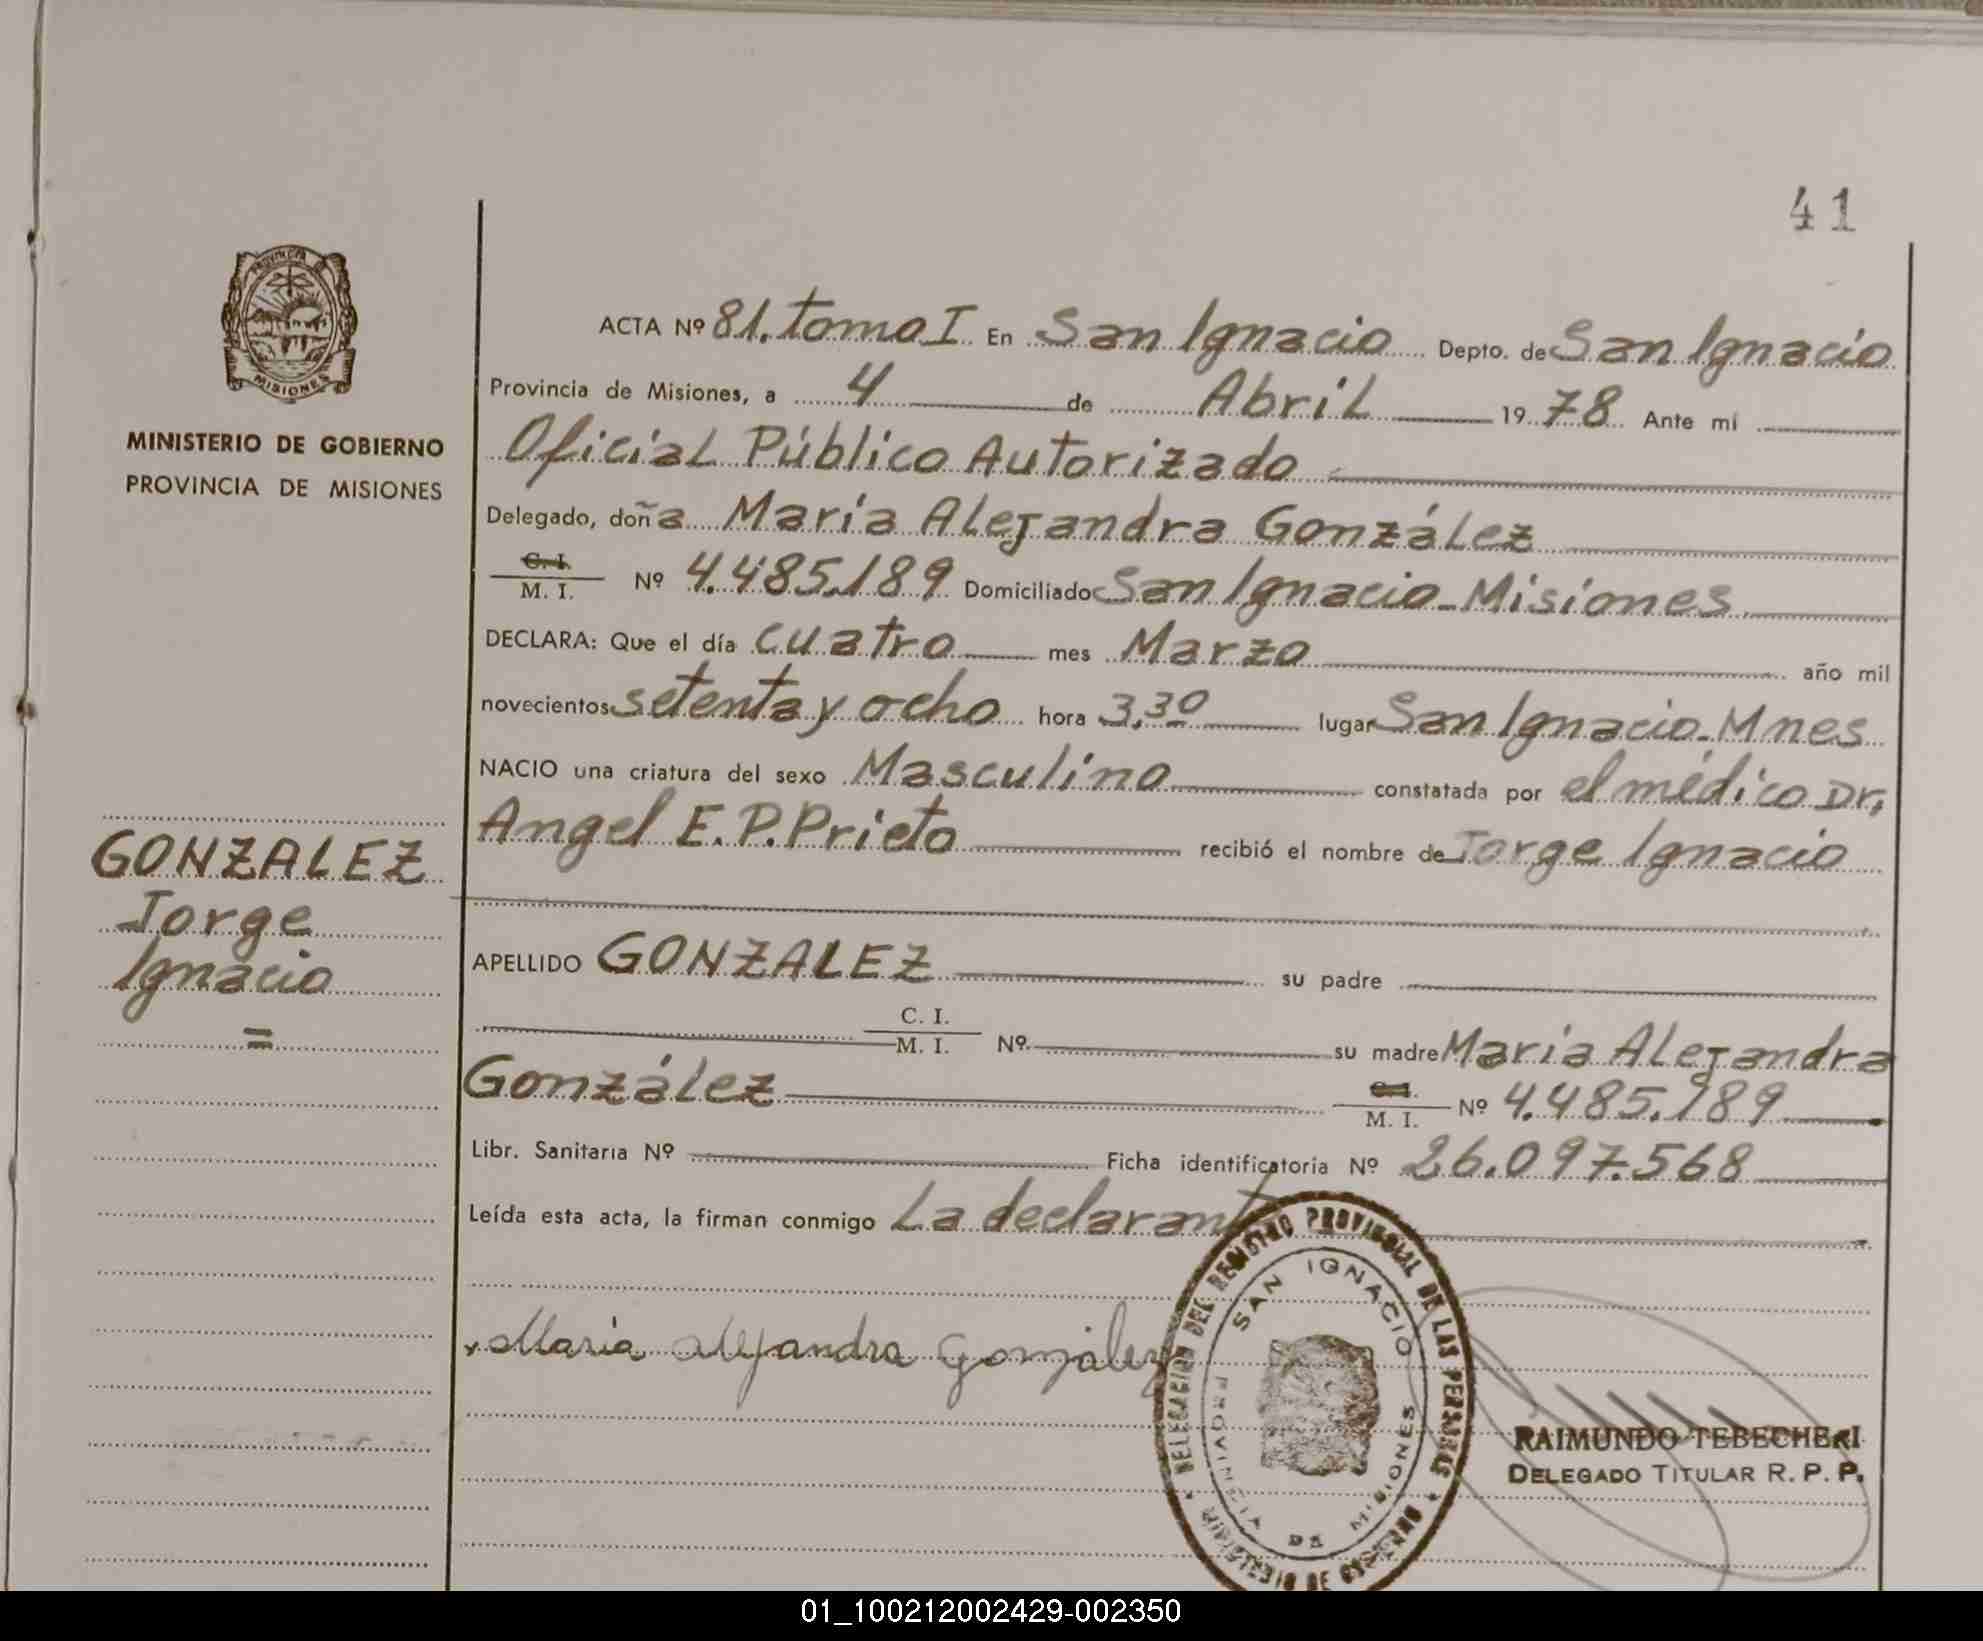 41
PROVINCIA DE
MISIONES
MINISTERIO DE GOBIERNO
PROVINCIA DE MISIONES
GONZALEZ
Jorge
Ignacio
=
ACTA Nº 81. tomo I En San Ignacio Depto. de San Ignacio
Provincia de Misiones, a 4 de Abril 1978 Ante mi
Oficial Público Autorizado
Delegado, doña María Alejandra González
C. I.
M. I. Nº 4.485.189 Domiciliado San Ignacio - Misiones
DECLARA: Que el día cuatro mes Marzo año mil
novecientos setenta y ocho hora 3,30 lugar San Ignacio - Mnes
NACIO una criatura del sexo Masculino constatada por el médico Dr,
Angel E. P. Prieto recibió el nombre de Jorge Ignacio
APELLIDO GONZALEZ su padre
C. I.
M. I. Nº su madre María Alejandra
González C. I.
M. I. Nº 4.485.189
Libr. Sanitaria Nº Ficha identificatoria Nº 26.097.568
Leída esta acta, la firman conmigo La declarante
María Alejandra González
DELEGACION DEL REGISTRO PROVINCIAL DE LAS PERSONAS
SAN IGNACIO
PROVINCIA DE MISIONES
RAIMUNDO TEBECHERI
DELEGADO TITULAR R. P. P.
01_100212002429-002350